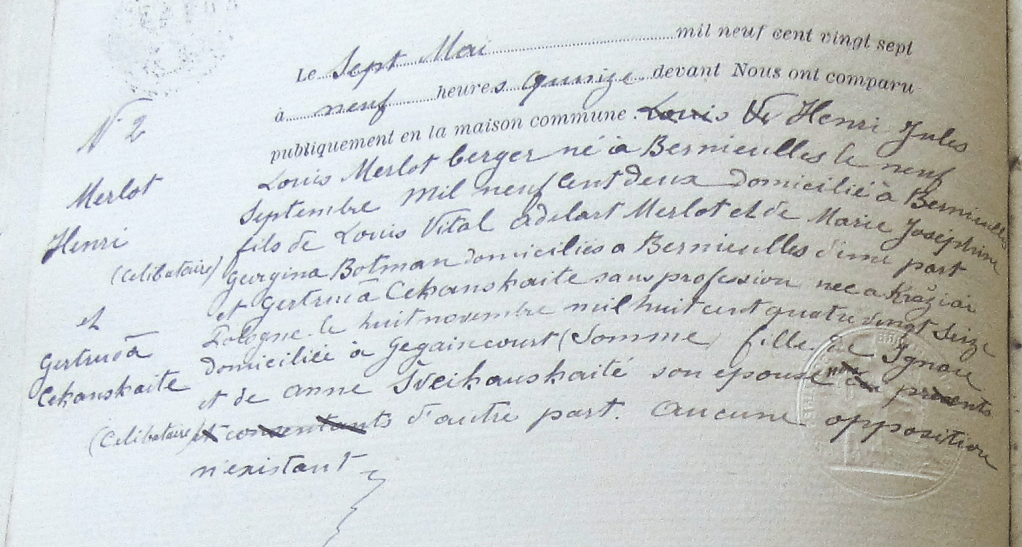 Le Sept Mai mil neuf cent vingt sept
à neuf heures quinze devant Nous ont comparu
publiquement en la maison commune. Louis Henri Jules
Louis Merlot berger né à Bernieulles le neuf
Septembre mil neuf cent deux domicilié à Bernieulles
fils de Louis Vital Adelart Merlot et de Marie Joséphine
Georgina Botman domiciliés à Bernieulles d'une part
et Gertrudā Cekanskaite sans profession née à Kražiai
Pologne le huit novembre mil huit cent quatre vingt seize
domiciliée à Gegaincourt (Somme) fille de Ignare
et de Anne Sveikauskaité son epouse présents
et consentants d'autre part. Aucune opposition
n'existant
N 2
Merlot
Henri
(Célibataire)
et
Gertrudā
Cekanskaite
(Célibataire)